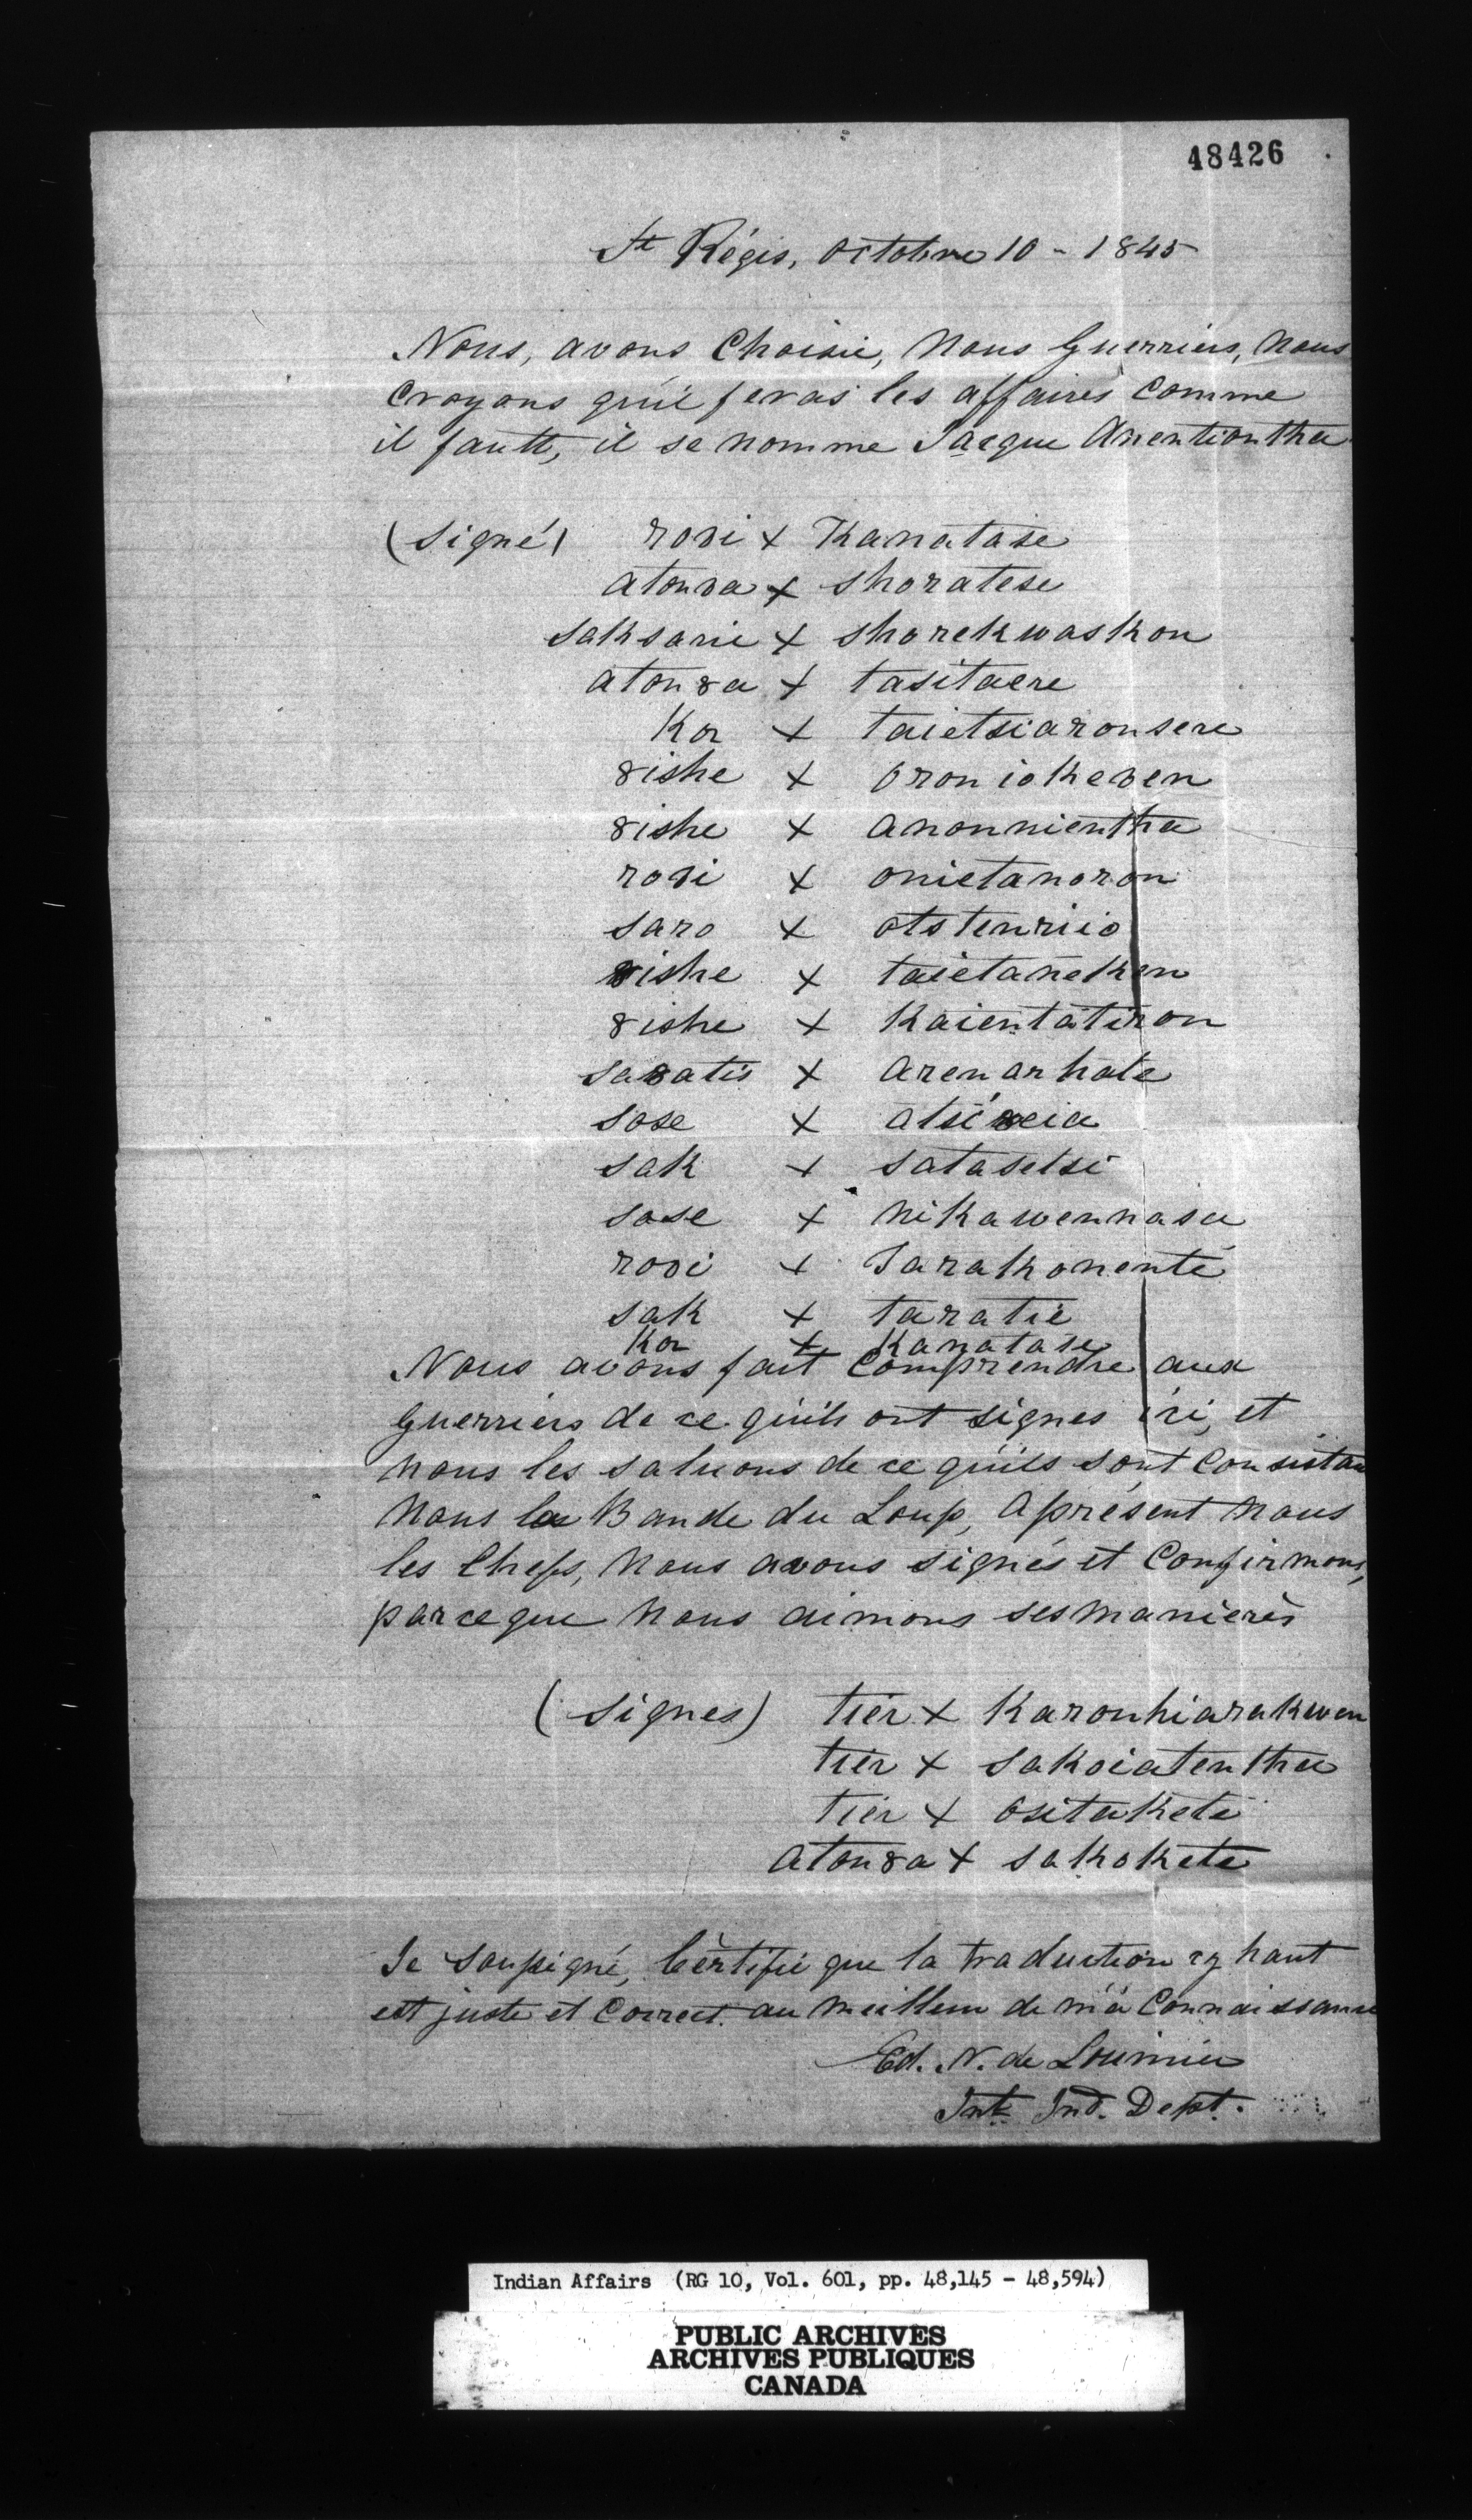 48426
St Régis, Octobre 10 - 1845
Nous, avons Choisie, Nous Guerriers, Nous
Croyons qu'il feras les affaires Comme
il fautt, il se nomme Jacque Anentiontha
(signé) rovi x Kanatase
atonva x shoratese
saksarie x shorekwaskon
aton8a x tasitaere
Kor x taietsiaronsere
8ishe x oroniokeven
8ishe x anonnientha
rovi x onietanoron
saro x otstenriio
8ishe x taietaneken
8ishe x Kaientatiron
sa8atis x arenarhote
sose x atsi8eia
sak x satasetsi
sose x nikawennasa
rovi x Tarakonente
sak x taratie
Kor x Kanatase
Nous avons fait Comprendre aux
Guerriers de ce qu'ils ont signes ici, et
nous les saluons de ce qu'ils sont Consistan
Nous la Bande du Loup, Aprésent Nous
les Chefs, Nous avons signés et Confirmons,
parceque Nous aimons ses manierès
(signes) tier x Karonhiarakwen
tier x sakoiatentha
tier x ositakete
aton8a x sakokete
Je soussigné, Certifie que la traduction cy haut
est juste et Correct. au meilleur de m'a Connaissance
Ed. N. de Lorimier
Int. Ind. Dept.
Indian Affairs (RG 10, Vol. 601, pp. 48,145 - 48,594)
PUBLIC ARCHIVES
ARCHIVES PUBLIQUES
CANADA